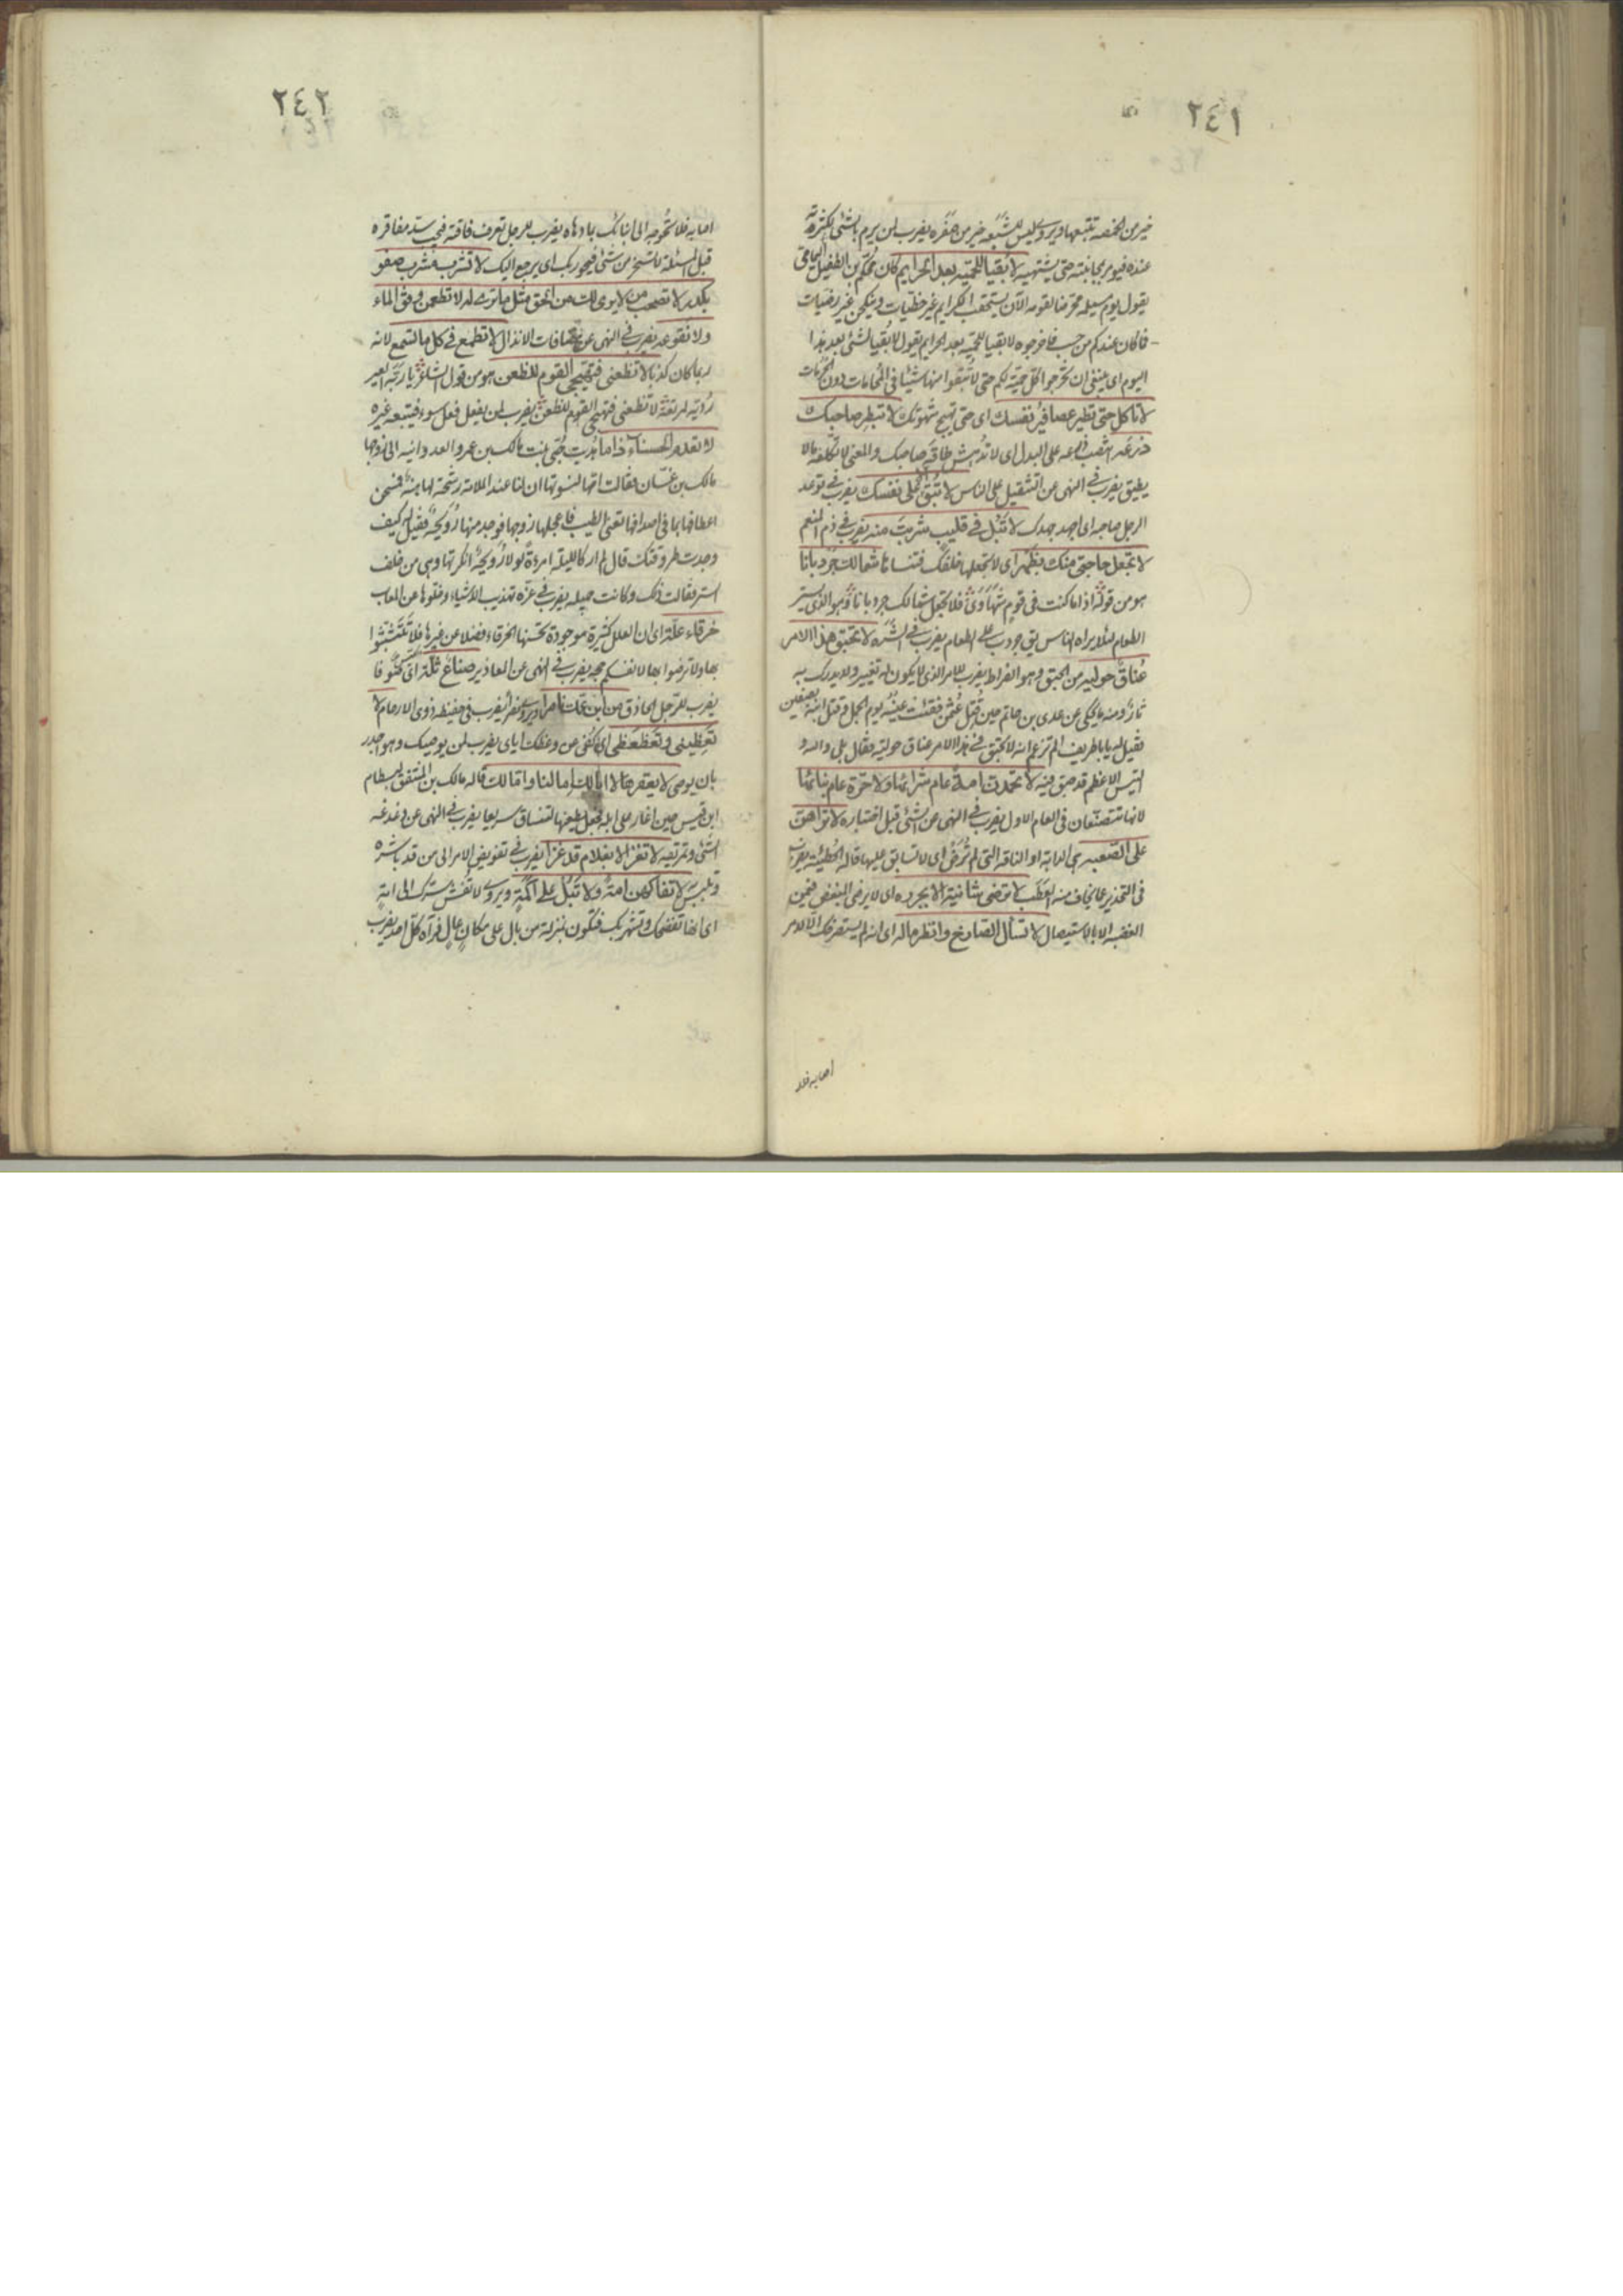 ٢٤١
خير من الخمصة تتبعها ويروى ليس للشبعة خير من صفرة يضرب لمن يبرم بالشئ لكثرته
عنده فيؤمر بمجانبته حتى يشتهيه لا بقيا للحمية بعد الحرايم كان محكم بن الطفيل اليمامي
يقول يوم مسيلمة محرضا لقومه الآن يستحقب الكرايم غير حظيات وينكحن غير رضيات
فما كان عندكم من حسب فاخرجوه لا بقيا للحمية بعد الحرايم يقول لا بقيا لشئ بعد هذا
اليوم اى ينبغى ان تخرجوا كل حمية لكم حتى لا تبقوا منها شيئا فى المحامات دون الحرمات
لا تاكل حتى تطير عصافير نفسك اى حتى تهيج شهوتك لا تبطر صاحبك
ذرعه نصب ذرعه على البدل اى لا تدهش طاقة صاحبك والمعنى لا تكلفه ما لا
يطيق يضرب فى النهى عن التثقيل على الناس لا تبق الا على نفسك يضرب فى توعد
الرجل صاحبه اى اجهد جهدك لا تبل فى قليب شربت منه يضرب فى ذم المنعم
لا تجعل حاجتى منك بظهر اى لا تجعلها خلفك فتنساها لا تجعل شمالك جردبانا
هو من قوله اذا ما كنت فى قوم شهاوى فلا تجعل شمالك جردبانا وهو الذى يستر
الطعام لئلا يراه الناس يقى جردب على الطعام يضرب فى الشره لا تحبق هذا الامر
عناق حولية من الحبق وهو الضراط يضرب للامر الذى لا يكون له تغيير ولا يدرك به
ثار ومنه ما يحكى عن عدى بن حاتم حين قتل عثمن ففقئت عينه يوم الجمل وقتل ابنه بصفين
فقيل له يا با طريف الم تزعم انه لا تحبق فى هذا الامر عناق حولية فقال بلى والله و
التيس الاعظم قد حبق فيه لا تحمدن امة عام شرائها ولا حرة عام بنائها
لانهما تتصنعان فى العام الاول يضرب فى النهى عن الشئ قبل اختباره لا تراهن
على الصعبة هى الدابة او الناقة التى لم ترض اى لا تسابق عليها قاله الحطيئة يضرب
فى التحذير عما يخاف منه العطب لا ترضى شانية الا بجرزه اى لا يرضى المبغض فيمن
ابغضه الا بالاستيصال لا تسأل الصارخ وانظر ماله اى انه لم يستصرخك الا لامر
اصابه فلا
٢٤٢
اصابه فلا تحوجه الى انبائك بما دهاه يضرب للرجل تعرف فاقته فيجب سد مفاقره
قبل المسئلة لا تسخر من شئ فيحور بك اى يرجع اليك لا تشرب مشرب صفو
بكدر لا تصحب من لا يرى لك من الحق مثل ما ترى له لا تطعمن فى وفق الماء
لا تطمع فى كل ما تسمع لانه
ربما كان كذبا لا تظعنى فتهيجى القوم للظعن هو من قول الشاعر
لا تظعنى فتهيجى القوم للظعن يضرب لمن يفعل فعل سوء فيتبعه غيره
لا تعدم الحسناء ذاما اهديت حبى بنت مالك بن عمرو العدوانية الى زوجها
مالك بن غسان فقالت امها لنسوتها ان لنا عند الملامسة رشحة لها هنة فمسحن
اعطافها بما فى اصدافها تعنى الطيب فاعجلها زوجها فوجد منها رويحة فقيل له كيف
وجدت طروقتك قال لم ار كالليلة امرءة لولا رويحة انكرتها وهى من خلف
الستر فقالت ذلك وكانت جميلة يضرب فى عزة تهذيب الاشياء وخلوها عن المعاب
خرقاء علة اى ان العلل كثيرة موجودة تحسنها الخرقاء فضلا عن غيرها فلا تتشبثوا
بها ولا ترضوا بها لانفسكم حجة يضرب فى النهى عن المعاذير صناع ثلة
يضرب للرجل الحاذق من ابن عمك نصرا ويروى نفرا يضرب فى حفيظة ذوى الارحام لا
تعظينى وتعظعظى اى كفى من وعظك اياى يضرب لمن يوصيك وهو اجدر
بان يوصى لا تعقرها لا ابا لك اما لنا واما لك قاله مالك بن المنتفق لبسطام
ابن قيس حين اغار على ابله فجعل يطعنها لتنساق سريعا يضرب فى النهى عن دغدغة
الشئ وتمزيقه لا تغز الا بغلام قد غزا يضرب فى تفويض الامر الى من قد باشره
وتلبس به لا تفاكهن امة ولا تبل على اكمة ويروى لا تفش سرك الى امة
اى انها تفضحك وتشهر بك فتكون بمنزلة من بال على مكان عال فرآه كل احد يضرب